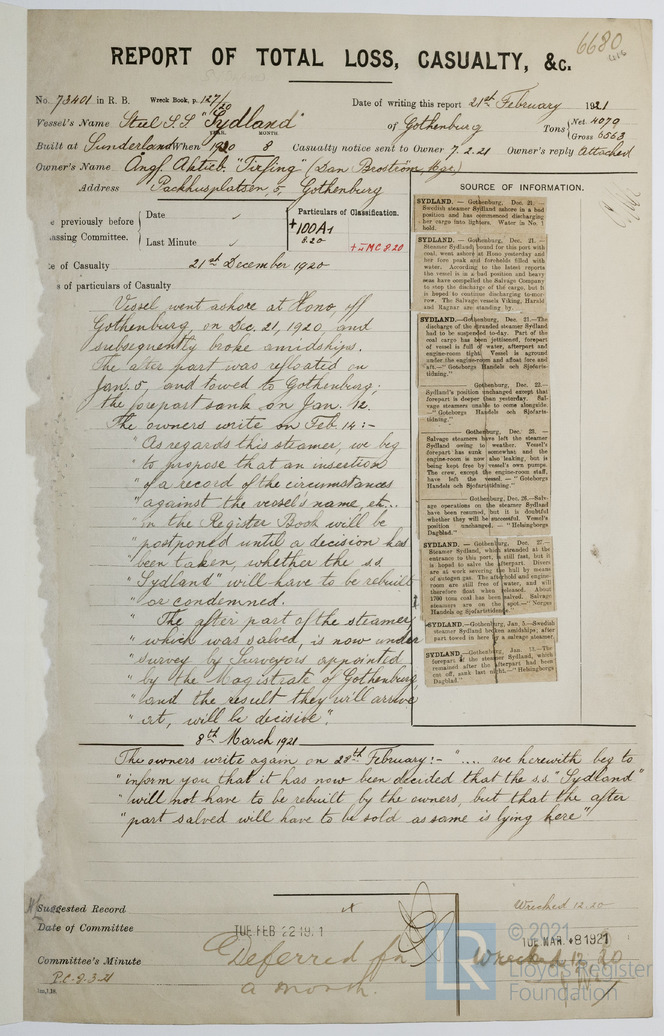 6680
REPORT OF TOTAL LOSS, CASUALTY, &c.
No. 73401 in R. B. Wreck Book, p. 127/20 Date of writing this report 21st February 1921
Vessel's Name Steel S.S. "Sydland" of Gothenburg Tons Net 4079 Gross 6563
YEAR. MONTH.
Built at Sunderland When 1920 8 Casualty notice sent to Owner 7.2.21 Owner's reply Attached
Owner's Name Angf. Aktieb. "Tirfing" (Dan Broström, Mgr)
Address Packhusplatsen, 5, Gothenburg
SOURCE OF INFORMATION.
e previously before
assing Committee.
Date
Last Minute
Particulars of Classification.
+100A1
8.20
+LMC 8.20
te of Casualty 21st December 1920
s of particulars of Casualty
Vessel went ashore at Hono, off
Gothenburg, on Dec. 21, 1920, and
subsequently broke amidships.
The after part was refloated on
Jan. 5, and towed to Gothenburg;
the forepart sank on Jan. 12.
The owners write on Feb 14:-
"As regards this steamer, we beg
"to propose that an insertion
"of a record of the circumstances
"against the vessel's name, etc...
"in the Register Book will be
"postponed until a decision has
"been taken, whether the s.s.
"Sydland" will have to be rebuilt
"or condemned.
"The after part of the steamer
"which was salved, is now under
"survey by Surveyors appointed
"by the Magistrate of Gothenburg,
"and the result they will arrive
"at, will be decisive".
SYDLAND.—Gothenburg, Dec. 21.—
Swedish steamer Sydland ashore in a bad
position and has commenced discharging
her cargo into lighters. Water in No. 1
hold.
SYDLAND.—Gothenburg, Dec. 21.—
Steamer Sydland, bound for this port with
coal, went ashore at Hono yesterday and
her fore peak and foreholds filled with
water. According to the latest reports
the vessel is in a bad position and heavy
seas have compelled the Salvage Company
to stop the discharge of the cargo, but it
is hoped to continue discharging to-mor-
row. The Salvage vessels Viking, Harald
and Ragnar are standing by.
SYDLAND.—Gothenburg, Dec. 21.—The
discharge of the stranded steamer Sydland
had to be suspended to-day. Part of the
coal cargo has been jettisoned, forepart
of vessel is full of water, afterpart and
engine-room tight. Vessel is aground
under the engine-room and afloat fore and
aft.—"Goteborgs Handels och Sjofarts-
tidning."
Gothenburg, Dec. 22.—
Sydland's position unchanged except that
forepart is deeper than yesterday. Sal-
vage steamers unable to come alongside.
—"Goteborgs Handels och Sjofarts-
tidning."
Gothenburg, Dec. 23.—
Salvage steamers have left the steamer
Sydland owing to weather. Vessel's
forepart has sunk somewhat and the
engine-room is now also leaking, but is
being kept free by vessel's own pumps.
The crew, except the engine-room staff,
have left the vessel.—"Goteborgs
Handels och Sjofartstidning."
Gothenburg, Dec. 26.—Salv-
age operations on the steamer Sydland
have been resumed, but it is doubtful
whether they will be successful. Vessel's
position unchanged.—"Helsingborgs
Dagblad."
SYDLAND.—Gothenburg, Dec. 27.—
Steamer Sydland, which stranded at the
entrance to this port, is still fast, but it
is hoped to salve the afterpart. Divers
are at work severing the hull by means
of autogen gas. The afterhold and engine-
room are still free of water, and will
therefore float when released. About
1700 tons coal has been salved. Salvage
steamers are on the spot.—"Norges
Handels og Sjofartstidende."
SYDLAND.—Gothenburg, Jan. 5.—Swedish
steamer Sydland broken amidships, after
part towed in here by a salvage steamer.
SYDLAND.—Gothenburg, Jan. 13.—The
forepart of the steamer Sydland, which
remained after the afterpart had been
cut off, sank last night.—"Helsingborgs
Dagblad."
8th March 1921
The owners write again on 28th February:- ".... we herewith beg to
"inform you that it has now been decided that the s.s. "Sydland"
"will not have to be rebuilt by the owners, but that the after
"part salved will have to be sold as same is lying here"
Suggested Record Wrecked 12.20
Date of Committee TUE FEB 22 1921 TUE MAR. 8 1921
Committee's Minute Deferred for a month. Wrecked 12.20
P.C-9.3-21
LR © 2021
Lloyd's Register
Foundation